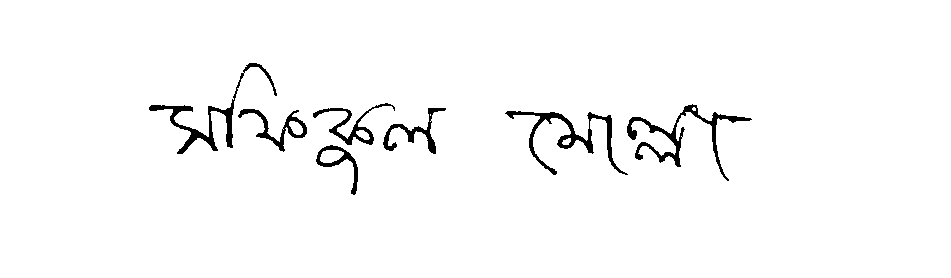 সফিকুল মোল্লা